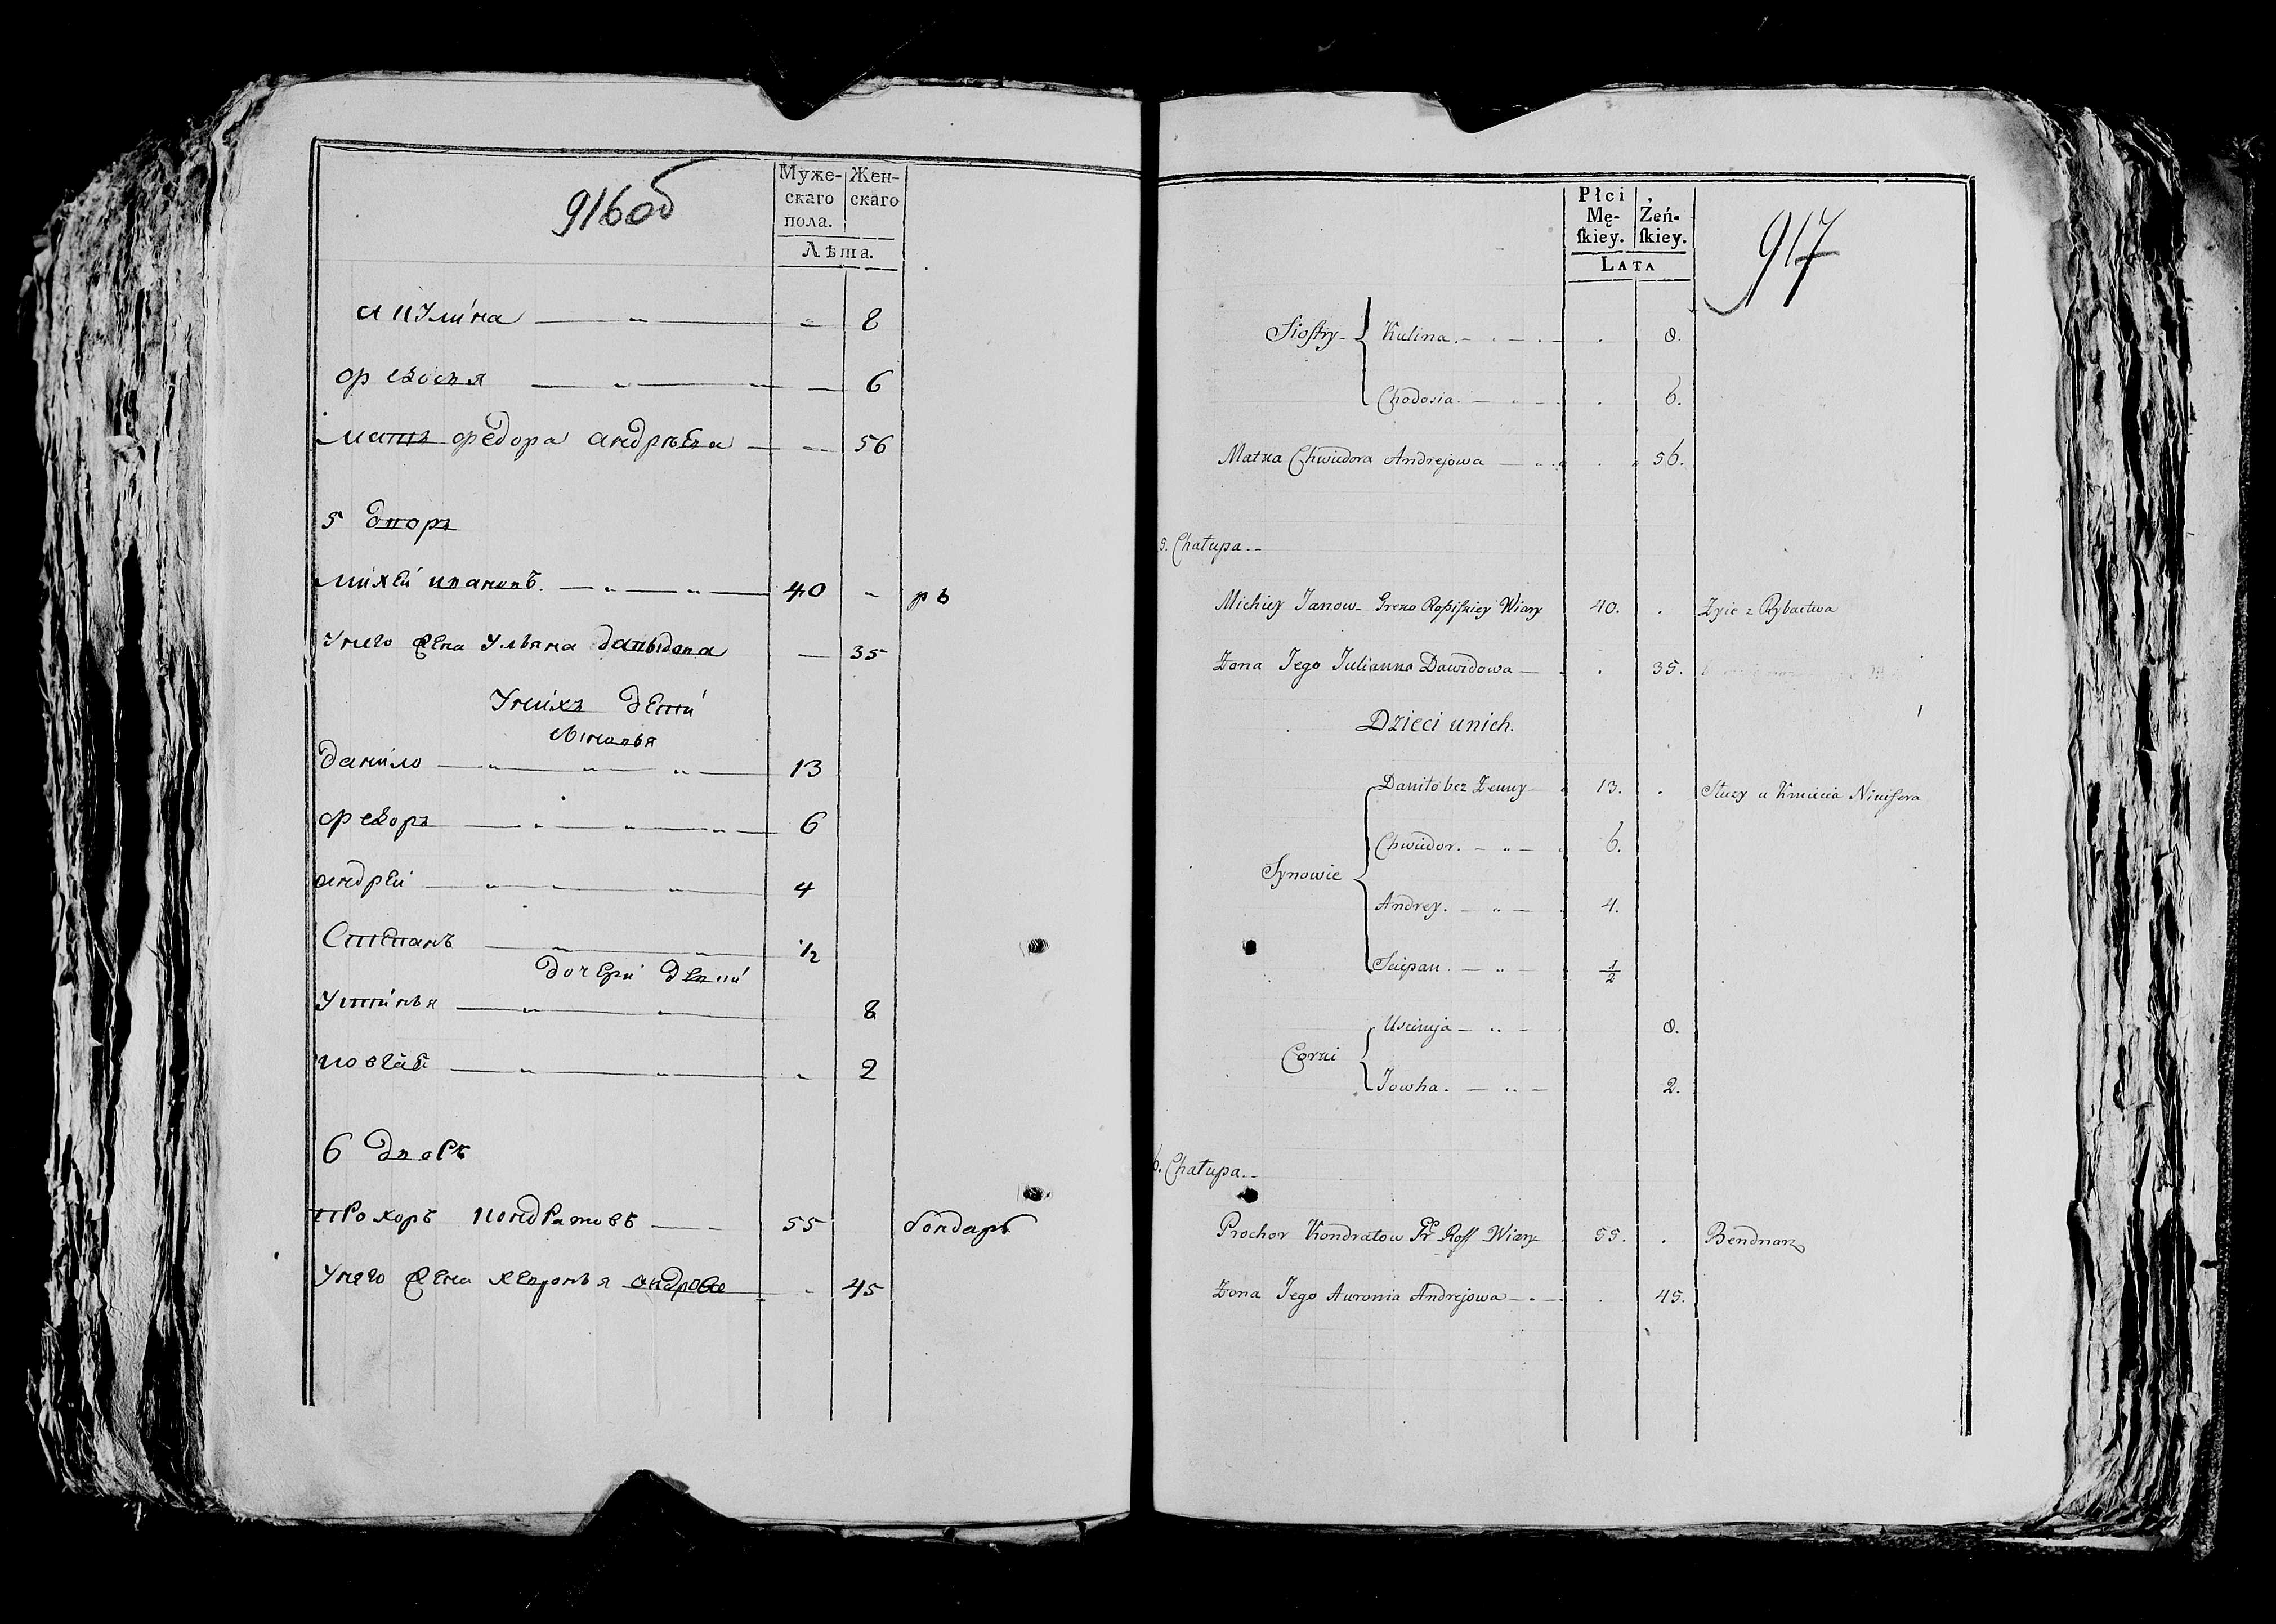 916об
Муже-
скаго
пола.
Жен-
скаго
Лѣта.
акулина — " — " 8
федосья — " — — 6
мать федора андрѣева — — 56
5 дворъ
михей иванов. — " — " — 40 " ръ
унего жена ульяна давыдова — 35
унихъ дети
сыновья
данило — " — " — " — 13
федоръ — " — " — " — 6
андрей — " — " — " — 4
Степанъ — " — " — 1/2
дочери
устинья — " — " — 8
6 дворъ
прохоръ кондратовъ — — 55 бондарь
унего жена хевронья 45
917
Płci
Mę-
ſkiey.
Żeń-
ſkiey.
LATA
Siostry Kulina. — . — . 8.
Chodosia. — " — . 6.
Matka Chwiedora Andrejowa — " . 56.
5. Chałupa. –
Michiey Janow – Greko Roßiſkiey Wiary 40. . Żyie z Rybactwa
Żona Jego Julianna Dawidowa — . 35.
Dzieci unich.
Synowie
Daniło bez Żenny 13. . Służy u Kmiecia
Chwiedor. — " — 6.
Andrey. — " — 4.
Sciepan. — " — 1/2
Corki
Uscinija — " — 8.
Jowha. — " — 2.
6. Chałupa. –
Prochor Kondratow Gr Roſſ Wiary 55. . Bendnarz
Żona Jego Auronia Andrejowa — . — . 45.